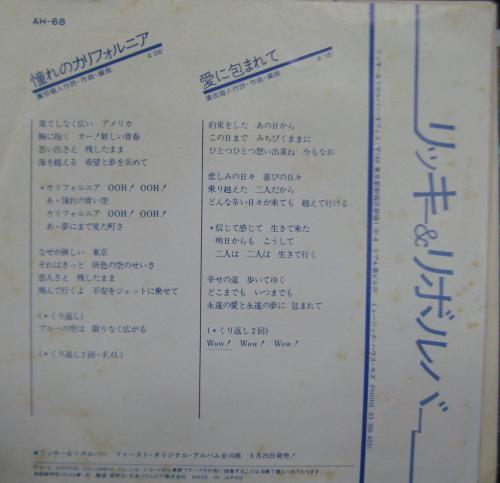 AH-68
憧れのカリフォルニア 4'06"
廣田龍人作詩・作曲・編曲
果てしなく広い アメリカ
胸に抱く オー!新しい青春
思い出さえ 残したまま
海を越える 希望と夢を求めて
*カリフォルニア OOH! OOH!
あゝ憧れの青い空
カリフォルニア OOH! OOH!
あゝ夢にまで見た町さ
なぜか淋しい 東京
それはきっと 灰色の空のせいさ
恋人さえ 残したまま
飛んで行くよ 不安をジェットに乗せて
(*くり返し)
ブルーの空は 限りなく広がる
(*くり返し2回〜F.O.)
愛に包まれて 4'15"
廣田龍人作詩・作曲・編曲
約束をした あの日から
この日まで みちびくままに
ひとつひとつ想い出重ね 今もなお
悲しみの日々 喜びの日々
乗り越えた 二人だから
どんな辛い日々が来ても 越えて行ける
*信じて感じて 生きて来た
明日からも こうして
二人は 二人は 生きて行く
幸せの道 歩いてゆく
どこまでも いつまでも
永遠の愛と永遠の夢に 包まれて
(*くり返し2回)
Wow! Wow! Wow!
リッキー&リボルバー
●リッキー&リボルバー ファースト・オリジナル・アルバム全10曲 5月25日発売!
NIPPON COLUMBIA CO., LTD.
MADE IN JAPAN